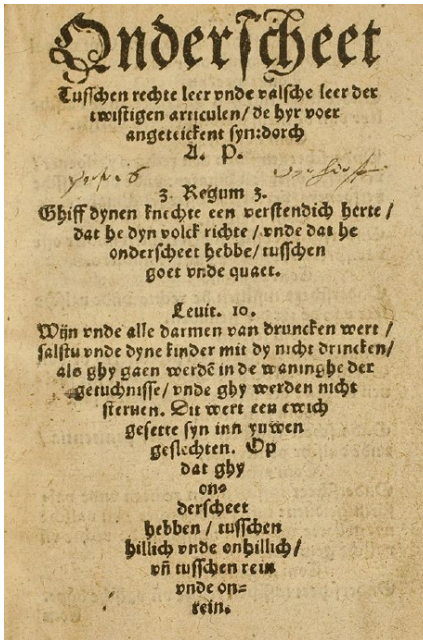 Onderscheet
Tusschen rechte leer vnde valsche leer der
twistigen articulen / de hyr voer
angeteickent syn: dorch
A. P.
3. Regum 3.
Ghiff dynen knechte een verstendich herte /
dat he dyn volck richte / vnde dat he
onderscheet hebbe / tusschen
goet vnde quaet.
Leuit. 10.
Wijn vnde alle darmen van druncken wert /
salstu vnde dyne kinder mit dy nicht drincken /
als ghy gaen werdē in de waninghe der
getuchnisse / vnde ghy werden nicht
steruen. Dit wert een ewich
gesette syn inn yuwen
geslechten. Op
dat ghy
on=
derscheet
hebben / tusschen
hillich vnde onhillich /
vñ tusschen rein
vnde on=
rein.